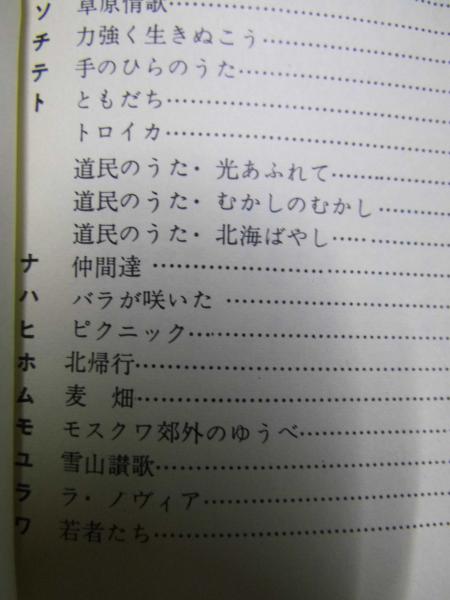 ソ 草原情歌
チ 力強く生きぬこう……………
テ 手のひらのうた……………
ト ともだち……………
トロイカ……………
道民のうた・光あふれて……………
道民のうた・むかしのむかし……………
道民のうた・北海ばやし……………
ナ 仲間達……………
ハ バラが咲いた……………
ヒ ピクニック……………
ホ 北帰行……………
ム 麦　畑……………
モ モスクワ郊外のゆうべ……………
ユ 雪山讃歌……………
ラ ラ・ノヴィア……………
ワ 若者たち……………